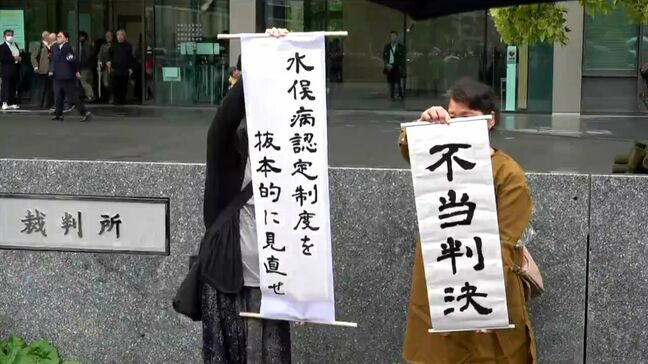 水俣病認定制度を
抜本的に見直せ
不当判決
裁判所